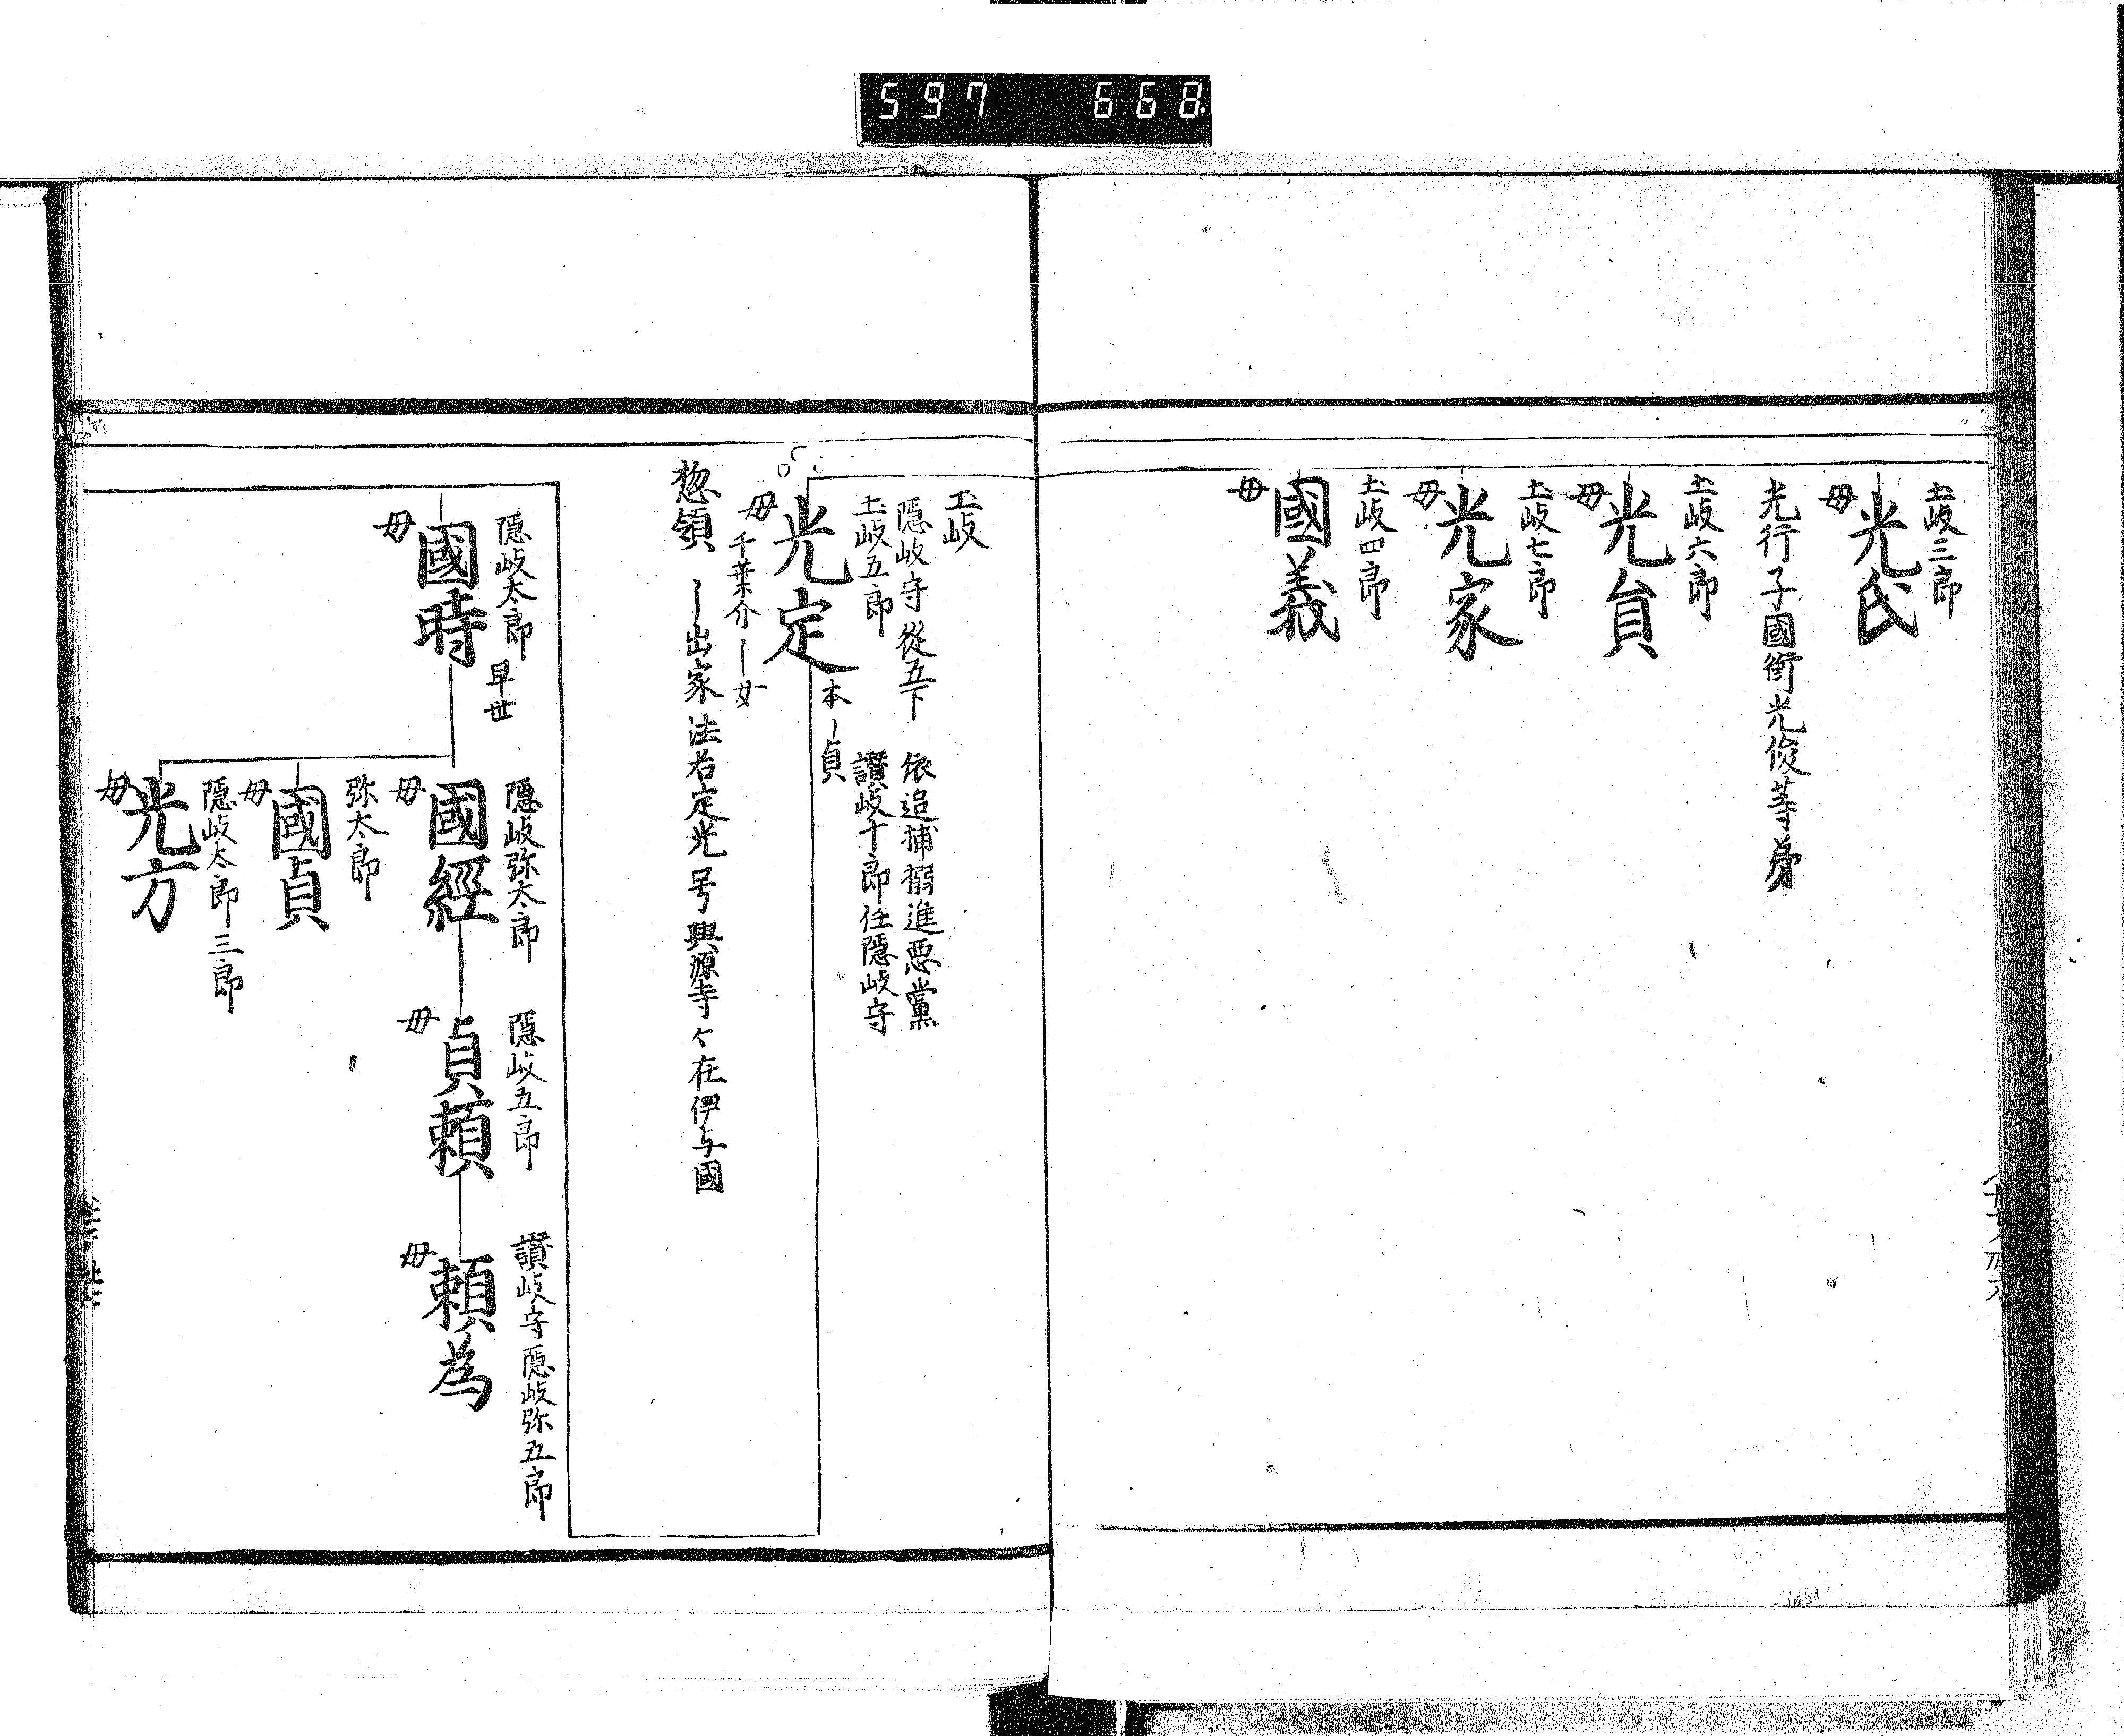 597 668
土岐三郎
光氏
母
光行子國衡光俊等弟
土岐六郎
光員
母
土岐七郎
光家
母
土岐四郎
國義
母
土岐
隠岐守 從五下 依追捕搦進悪黨
土岐五郎 讃岐十郎任隠岐守
本ー貞
光定
母
千葉介ー女
惣領 ー出家法名定光号興源寺々在伊与國
隠岐太郎
早世
國時
母
隠岐弥太郎
國經
母
隠岐五郎
貞頼
母
讃岐守 隠岐弥五郎
頼為
母
弥太郎
國貞
母
隠岐太郎三郎
光方
母